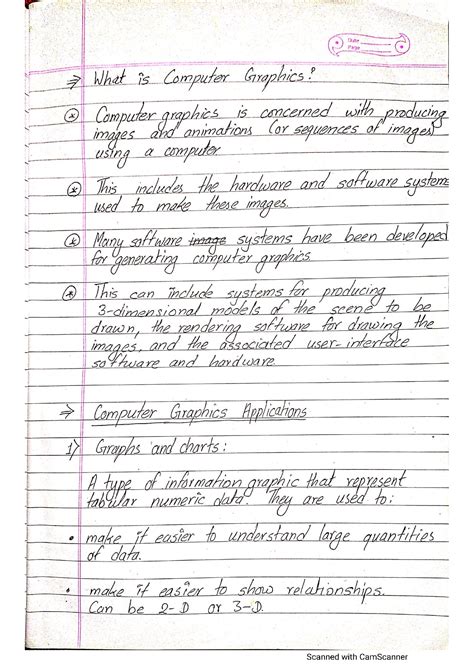 Date
Page
⇒ What is Computer Graphics?
⊛ Computer graphics is concerned with producing
images and animations (or sequences of images)
using a computer.
⊛ This includes the hardware and software systems
used to make these images.
⊛ Many software image systems have been developed
for generating computer graphics.
⊛ This can include systems for producing
3-dimensional models of the scene to be
drawn, the rendering software for drawing the
images, and the associated user-interface
software and hardware.
⇒ Computer Graphics Applications
1) Graphs and charts:
A type of information graphic that represent
tabular numeric data. They are used to:
• make it easier to understand large quantities
of data.
• make it easier to show relationships.
Can be 2-D or 3-D.
Scanned with CamScanner